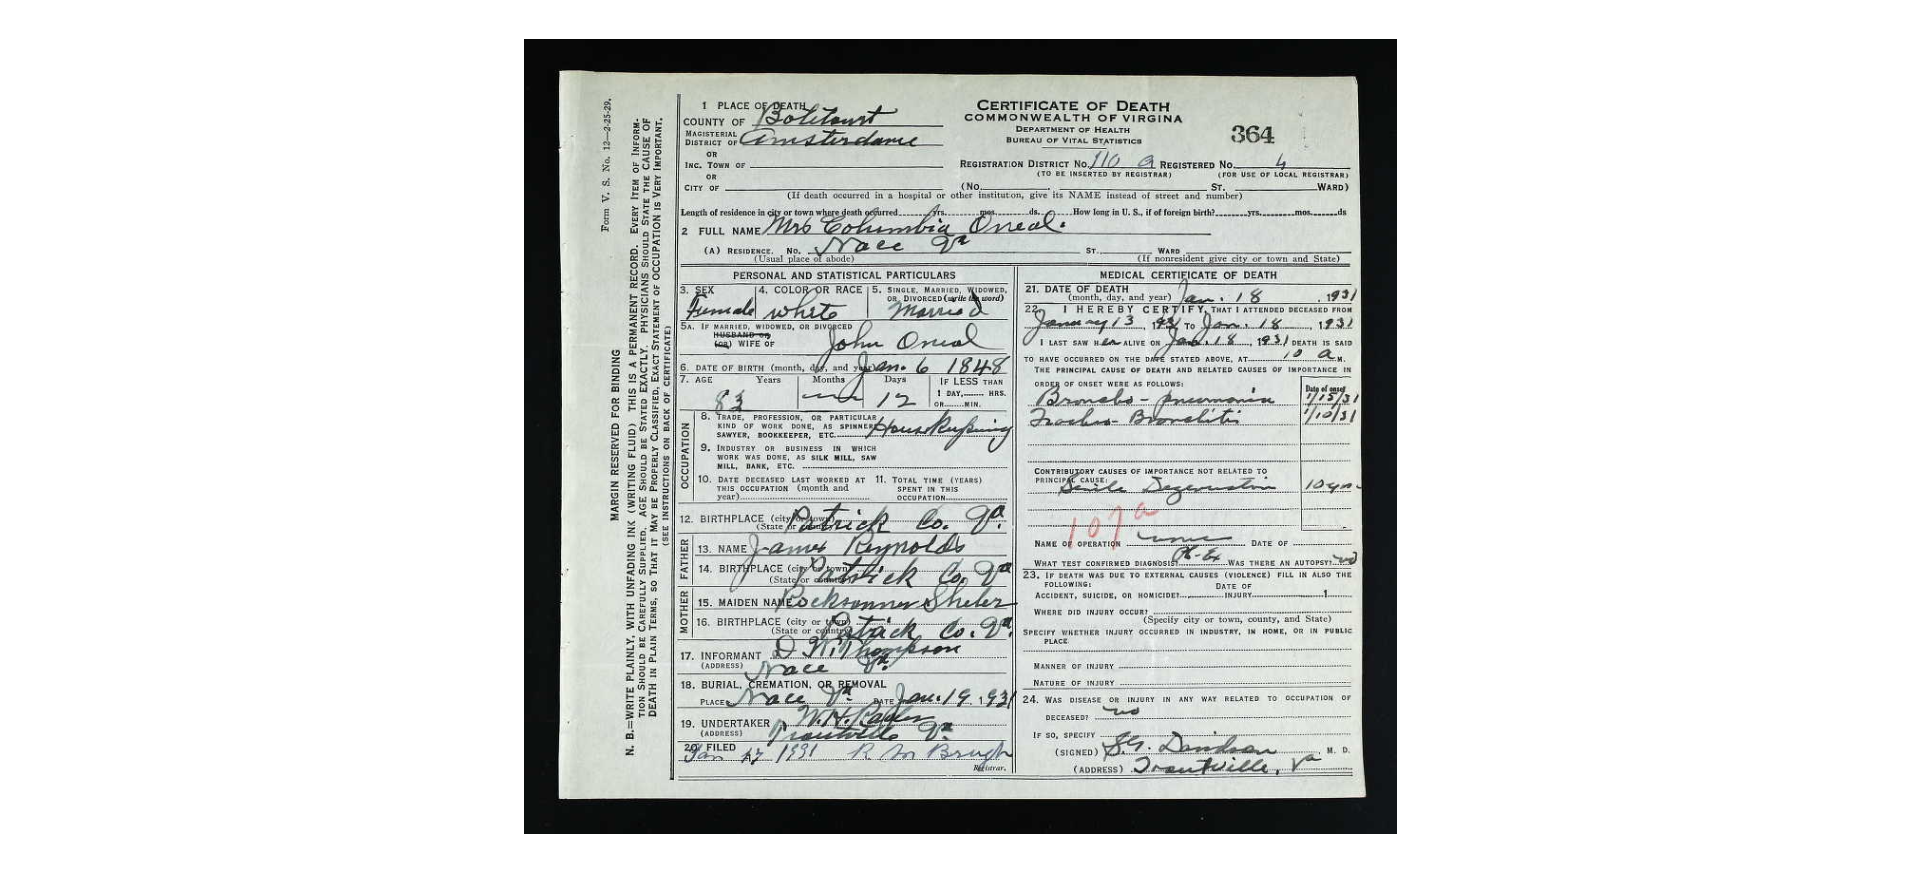 Form V. S. No. 12—2-25-29.
MARGIN RESERVED FOR BINDING
N. B.—WRITE PLAINLY, WITH UNFADING INK (WRITING FLUID) THIS IS A PERMANENT RECORD. EVERY ITEM OF INFORM-
TION SHOULD BE CAREFULLY SUPPLIED. AGE SHOULD BE STATED EXACTLY. PHYSICIANS SHOULD STATE THE CAUSE OF
DEATH IN PLAIN TERMS, SO THAT IT MAY BE PROPERLY CLASSIFIED. EXACT STATEMENT OF OCCUPATION IS VERY IMPORTANT.
(SEE INSTRUCTIONS ON BACK OF CERTIFICATE)
1 PLACE OF DEATH
COUNTY OF Botetourt
MAGISTERIAL DISTRICT OF Amsterdame
OR
INC. TOWN OF
OR
CITY OF
CERTIFICATE OF DEATH
COMMONWEALTH OF VIRGINA
DEPARTMENT OF HEALTH
BUREAU OF VITAL STATISTICS
364
REGISTRATION DISTRICT NO. 110 a REGISTERED NO. 4
(TO BE INSERTED BY REGISTRAR) (FOR USE OF LOCAL REGISTRAR)
(No. ST. WARD)
(If death occurred in a hospital or other instituton, give its NAME instead of street and number)
Length of residence in city or town where death occurred yrs. mos. ds. How long in U. S., if of foreign birth? yrs. mos. ds
2 FULL NAME Mrs Columbia Oneal.
(A) RESIDENCE. No. Nace Va ST. WARD
(Usual place of abode) (If nonresident give city or town and State)
PERSONAL AND STATISTICAL PARTICULARS
3. SEX 4. COLOR OR RACE 5. SINGLE, MARRIED, WIDOWED, OR DIVORCED (write the word)
Female white Married
5A. IF MARRIED, WIDOWED, OR DIVORCED
HUSBAND OF
(OR) WIFE OF John Oneal
6. DATE OF BIRTH (month, day, and year) Jan. 6 1848
7. AGE Years Months Days IF LESS THAN
1 DAY, HRS.
OR MIN.
83 12
OCCUPATION
8. TRADE, PROFESSION, OR PARTICULAR
KIND OF WORK DONE, AS SPINNER,
SAWYER, BOOKKEEPER, ETC. HouseKeeping
9. INDUSTRY OR BUSINESS IN WHICH
WORK WAS DONE, AS SILK MILL, SAW
MILL, BANK, ETC.
10. DATE DECEASED LAST WORKED AT
THIS OCCUPATION (month and
year)
11. TOTAL TIME (YEARS)
SPENT IN THIS
OCCUPATION
12. BIRTHPLACE (city or town)
(State or country) Patrick Co. Va.
FATHER
13. NAME James Reynolds
14. BIRTHPLACE (city or town)
(State or country) Patrick Co, Va
MOTHER
15. MAIDEN NAME Rocksanner Sheler
16. BIRTHPLACE (city or town)
(State or country) Patrick Co. Va.
17. INFORMANT D. W. Thompson
(ADDRESS) Nace Va.
18. BURIAL, CREMATION, OR REMOVAL
PLACE Nace Va. DATE Jan. 19, 1931
19. UNDERTAKER W. H. Rader
(ADDRESS) Troutville Va
20. FILED Jan 27 1931 R M Brugh
Registrar.
MEDICAL CERTIFICATE OF DEATH
21. DATE OF DEATH
(month, day, and year) Jan. 18, 1931
22. I HEREBY CERTIFY, THAT I ATTENDED DECEASED FROM
January 13, 1931 TO Jan. 18, 1931
I LAST SAW HER ALIVE ON Jan. 18, 1931 DEATH IS SAID
TO HAVE OCCURRED ON THE DATE STATED ABOVE, AT 10 a M.
THE PRINCIPAL CAUSE OF DEATH AND RELATED CAUSES OF IMPORTANCE IN
ORDER OF ONSET WERE AS FOLLOWS: Date of onset
Broncho-pneumonia 1/15/31
Tracheo-Bronchitis 1/10/31
CONTRIBUTORY CAUSES OF IMPORTANCE NOT RELATED TO
PRINCIPAL CAUSE:
Senile Degeneration 10 yrs
107a
NAME OF OPERATION none DATE OF
WHAT TEST CONFIRMED DIAGNOSIS? Ph-Ex WAS THERE AN AUTOPSY? no
23. IF DEATH WAS DUE TO EXTERNAL CAUSES (VIOLENCE) FILL IN ALSO THE
FOLLOWING:
ACCIDENT, SUICIDE, OR HOMICIDE? DATE OF INJURY 1
WHERE DID INJURY OCCUR?
(Specify city or town, county, and State)
SPECIFY WHETHER INJURY OCCURRED IN INDUSTRY, IN HOME, OR IN PUBLIC
PLACE
MANNER OF INJURY
NATURE OF INJURY
24. WAS DISEASE OR INJURY IN ANY WAY RELATED TO OCCUPATION OF
DECEASED? no
IF SO, SPECIFY
(SIGNED) S.G. Davidson, M. D.
(ADDRESS) Troutville, Va